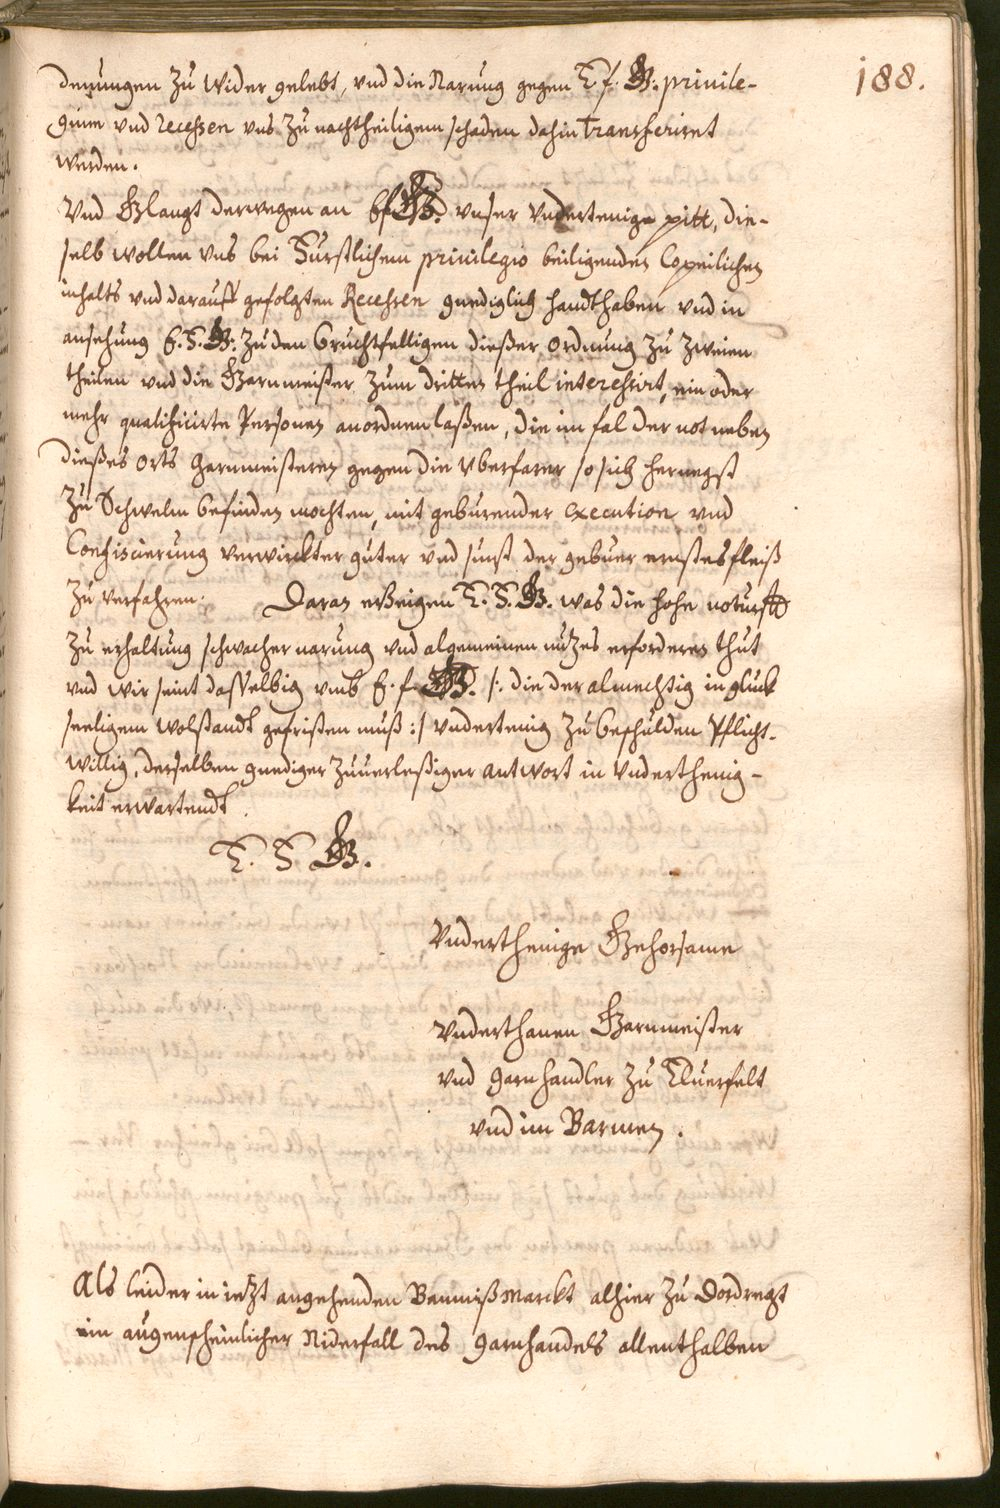 188.
denungen zu wider gelebt, vnd die Narung gegen E. f. G. privile-
gium vnd recessen vns zu nachtheiligem schaden dahin transferiret
werden.
Vnd Glangt derwegen an E f G. vnser vndertenige pitt, die-
selb wollen vns bei Furstlichem privilegio beiligenden Copeilichen
inhalts vnd darauff gefolgten Recessen gnediglich handthaben vnd in
ansehung E. F. G: zu den bruchtfelligen dießer ordnung zu zweien
theilen vnd die Garnmeister zum dritten theil interessirt, ein oder
mehr qualificirte Personen anordnen laßen, die im fal der not neben
dießes orts garnmeisteren gegen die vberfarer so sich hernegst
zu Schwelm befinden mochten, mit geburender execution vnd
Confiscierung verwirckter guter vnd sunst der gebuer ernstes fleiß
zu verfahren. Daran erzeigen E. F. G. was die hohe noturfft
zu erhaltung schwacher narung vnd algemeinen nutzes erforderen thut
vnd wir seint dasselbig vmb E. f. G. /: die der almechtig in gluck
seeligem wolstandt gefristen muß :/ vndertenig zu beschulden Pflicht-
willig, derselben gnediger zuuerleßiger antwort in vnderthenig-
keit erwartendt.
E. F. G.
Vnderthenige Gehorsame
vnderthanen Garnmeister
vnd garnhandler zu Eluerfelt
vnd im Barmen.
Als leider in ietzt angehenden Bamißmarckt alhier zu Dordregt
ein augenscheinlicher Niderfall des garnhandels allenthalben